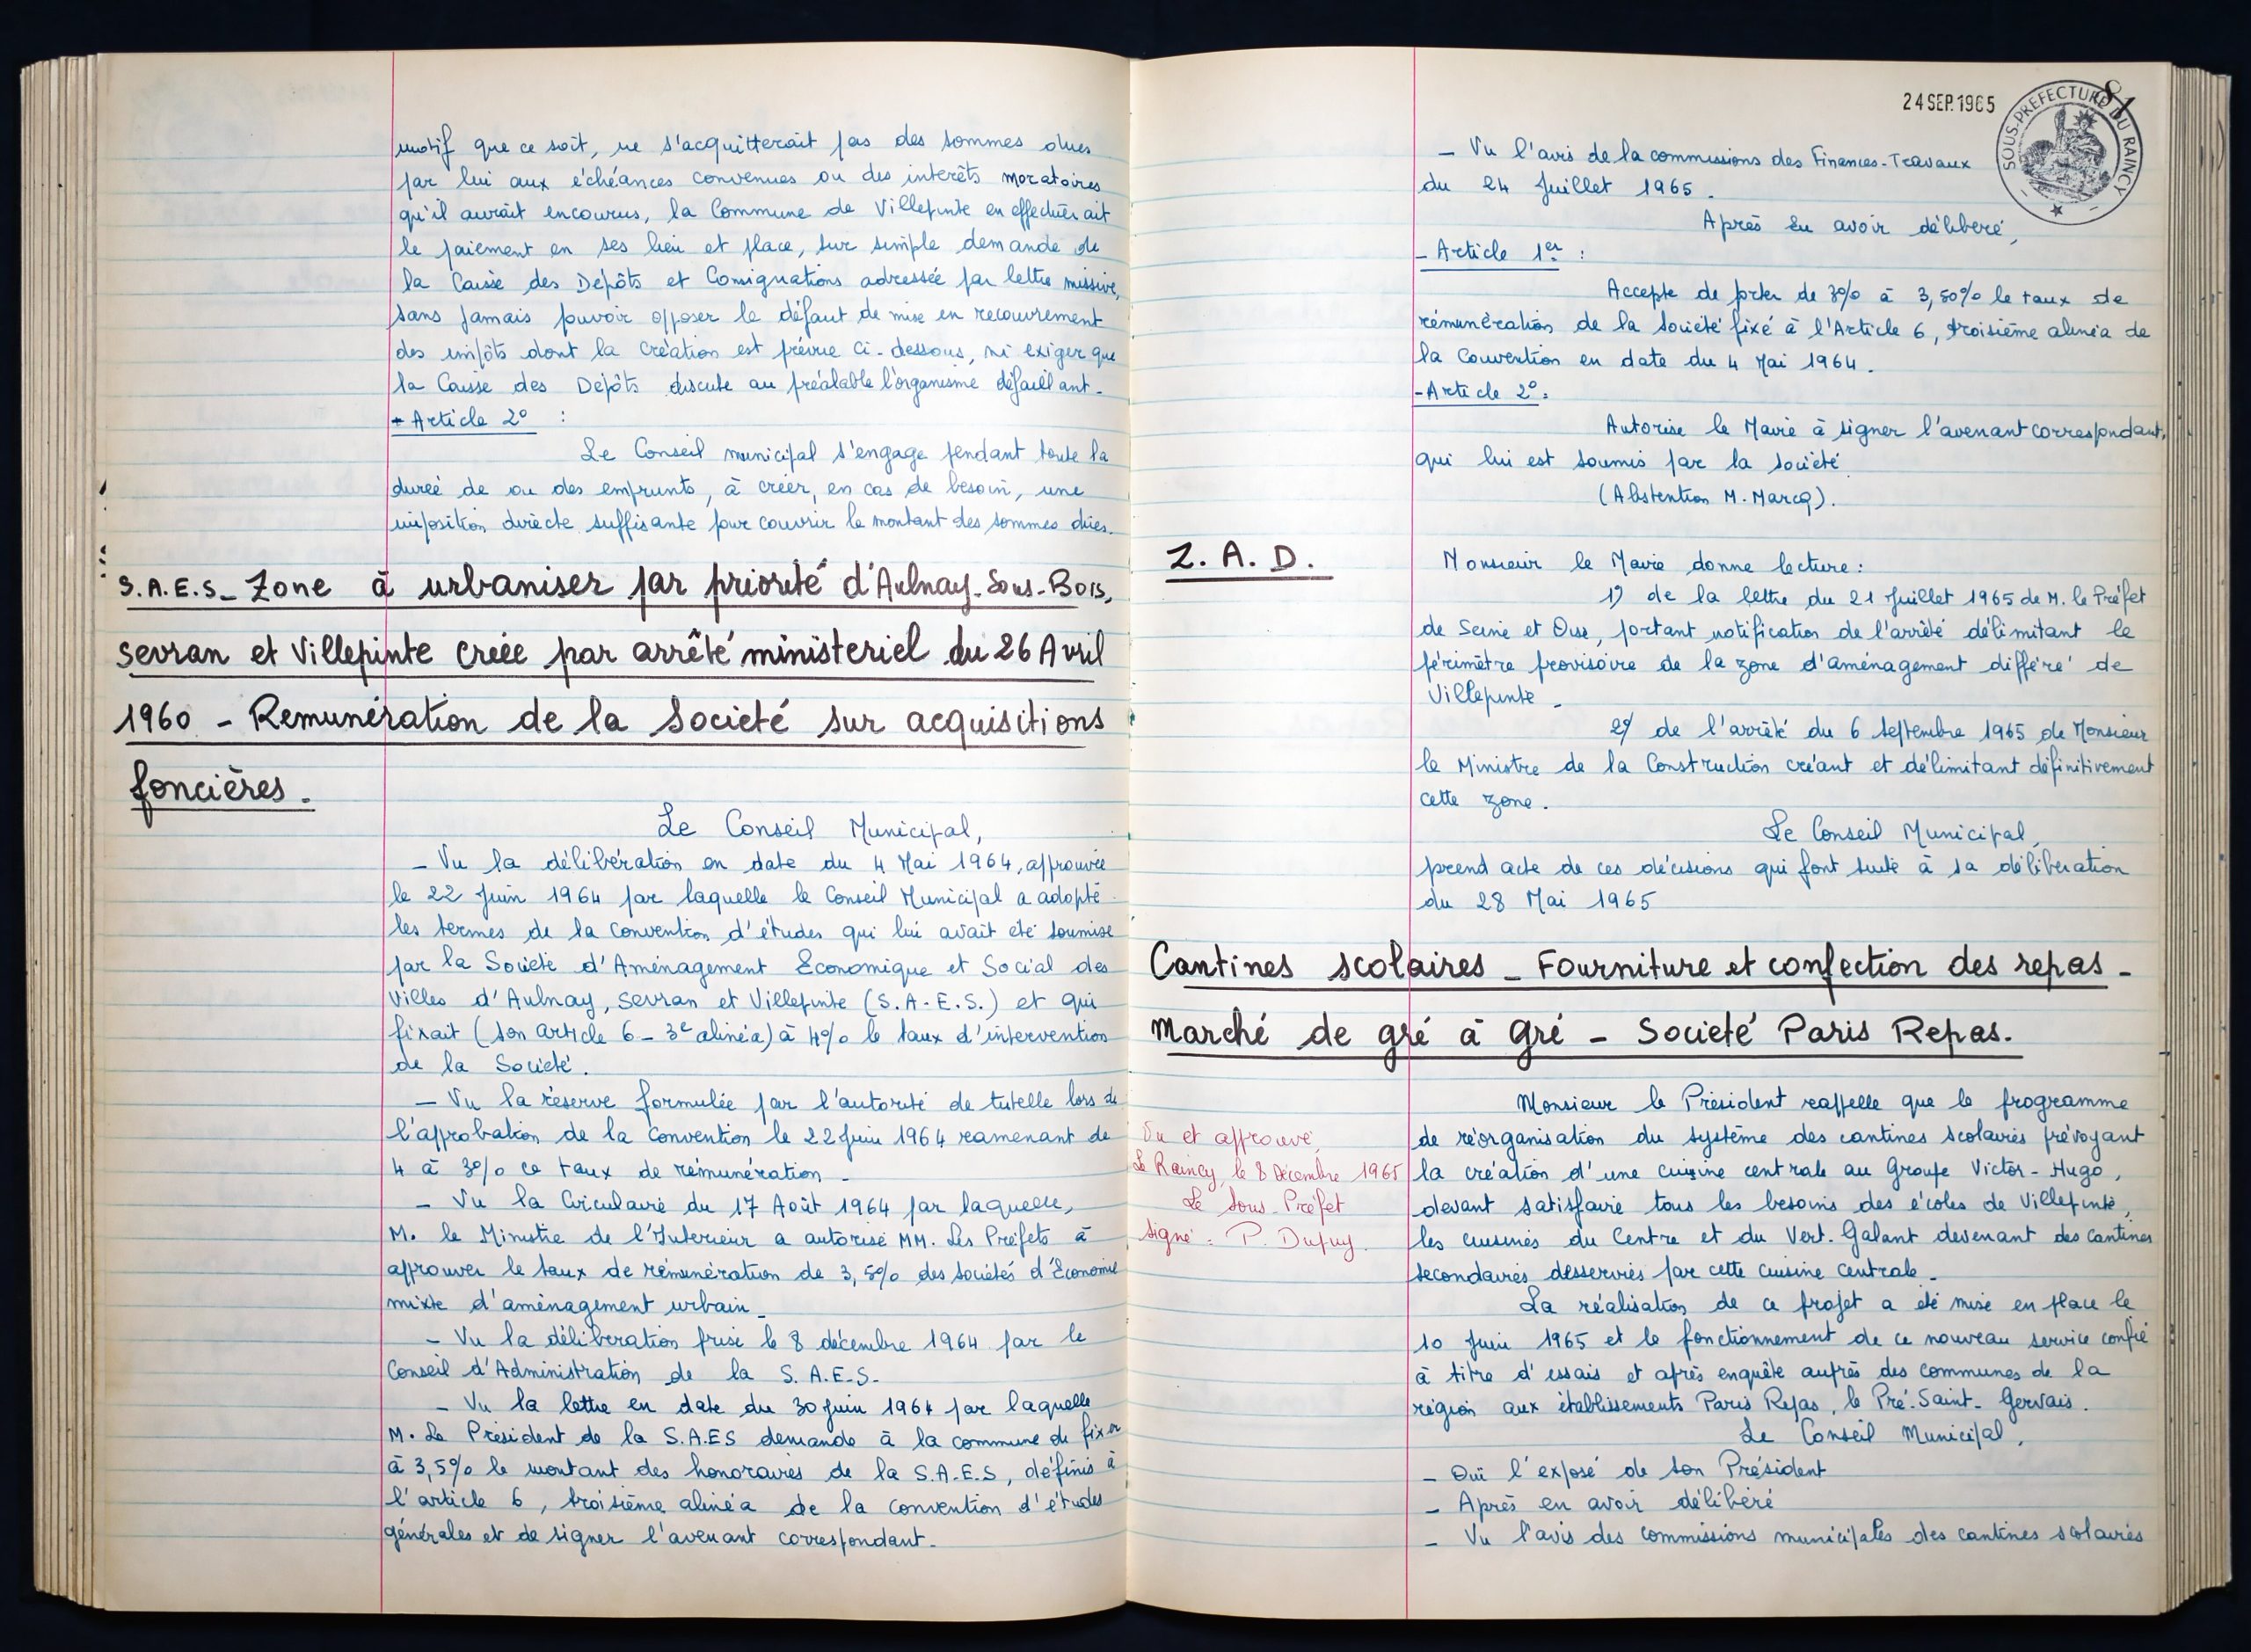 motif que ce soit, ne s'acquitterait pas des sommes dues
par lui aux échéances convenues ou des interêts moratoires
qu'il aurait encourus, la Commune de Villepinte en effectuerait
le paiement en ses lieu et place, sur simple demande de
la Caisse des Depôts et Consignations adressée par lettre missive,
sans jamais pouvoir opposer le défaut de mise en recouvrement
des impôts dont la création est prévue ci-dessous, ni exiger que
la Caisse des Depôts discute au préalable l'organisme défaillant.
- Article 2° :
Le Conseil municipal s'engage pendant toute la
durée de ou des emprunts, à créer, en cas de besoin, une
imposition directe suffisante pour couvrir le montant des sommes dûes.
S.A.E.S_ Zone à urbaniser par priorité d'Aulnay-Sous-Bois,
Sevran et Villepinte créée par arrêté ministeriel du 26 Avril
1960 - Remunération de la Société sur acquisitions
foncières.
Le Conseil Municipal,
- Vu la délibération en date du 4 Mai 1964, approuvée
le 22 Juin 1964 par laquelle le Conseil Municipal a adopté
les termes de la convention d'études qui lui avait été soumise
par la Société d'Aménagement Economique et Social des
Villes d'Aulnay, Sevran et Villepinte (S.A.E.S.) et qui
fixait (son article 6 - 3e alinéa) à 4% le taux d'intervention
de la Société.
- Vu la réserve formulée par l'autorité de tutelle lors de
l'approbation de la convention le 22 Juin 1964 ramenant de
4 à 3% ce taux de rémunération.
- Vu la Circulaire du 17 Août 1964 par laquelle,
M. le Ministre de l'Interieur a autorisé MM. Les Préfets à
approuver le taux de rémunération de 3,5% des sociétés d'Economie
mixte d'aménagement urbain_
- Vu la délibération prise le 8 décembre 1964 par le
Conseil d'Administration de la S.A.E.S.
- Vu la lettre en date du 30 Juin 1964 par laquelle
M. Le Président de la S.A.E.S demande à la commune de fixer
à 3,5% le montant des honoraires de la S.A.E.S, définis à
l'article 6, troisième alinéa de la convention d'études
générales et de signer l'avenant correspondant.
24 SEP. 1965
81
SOUS-PREFECTURE DU RAINCY
- Vu l'avis de la commissions des Finances-Travaux
du 24 Juillet 1965.
Après en avoir délibéré,
- Article 1er :
Accepte de porter de 3% à 3,50% le taux de
rémunération de la Société fixé à l'Article 6, troisième alinéa de
la Convention en date du 4 Mai 1964.
- Article 2° :
Autorise le Maire à signer l'avenant correspondant,
qui lui est soumis par la société.
(Abstention M. Marcq).
Z.A.D.
Monsieur le Maire donne lecture :
1°) de la lettre du 21 Juillet 1965 de M. le Préfet
de Seine et Oise, portant notification de l'arrêté délimitant le
périmètre provisoire de la zone d'aménagement différé de
Villepinte_
2°) de l'arrêté du 6 septembre 1965 de Monsieur
le Ministre de la Construction créant et délimitant définitivement
cette zone.
Le Conseil Municipal,
prend acte de ces décisions qui font suite à sa délibération
du 28 Mai 1965
Cantines scolaires - Fourniture et confection des repas -
Marché de gré à gré - Société Paris Repas.
Vu et approuvé,
Le Raincy, le 8 Décembre 1965
Le Sous-Préfet
signé : P. Dupuy.
Monsieur le Président rappelle que le programme
de réorganisation du système des cantines scolaires prévoyant
la création d'une cuisine centrale au Groupe Victor-Hugo,
devant satisfaire tous les besoins des écoles de Villepinte,
les cuisines du Centre et du Vert-Galant devenant des cantines
secondaires desservies par cette cuisine centrale_
La réalisation de ce projet a été mise en place le
10 Juin 1965 et le fonctionnement de ce nouveau service confié
à titre d'essais et après enquête auprès des communes de la
région aux établissements Paris Repas, le Pré-Saint-Gervais.
Le Conseil Municipal,
- Ouï l'exposé de son Président
- Après en avoir délibéré
- Vu l'avis des commissions municipales des cantines scolaires